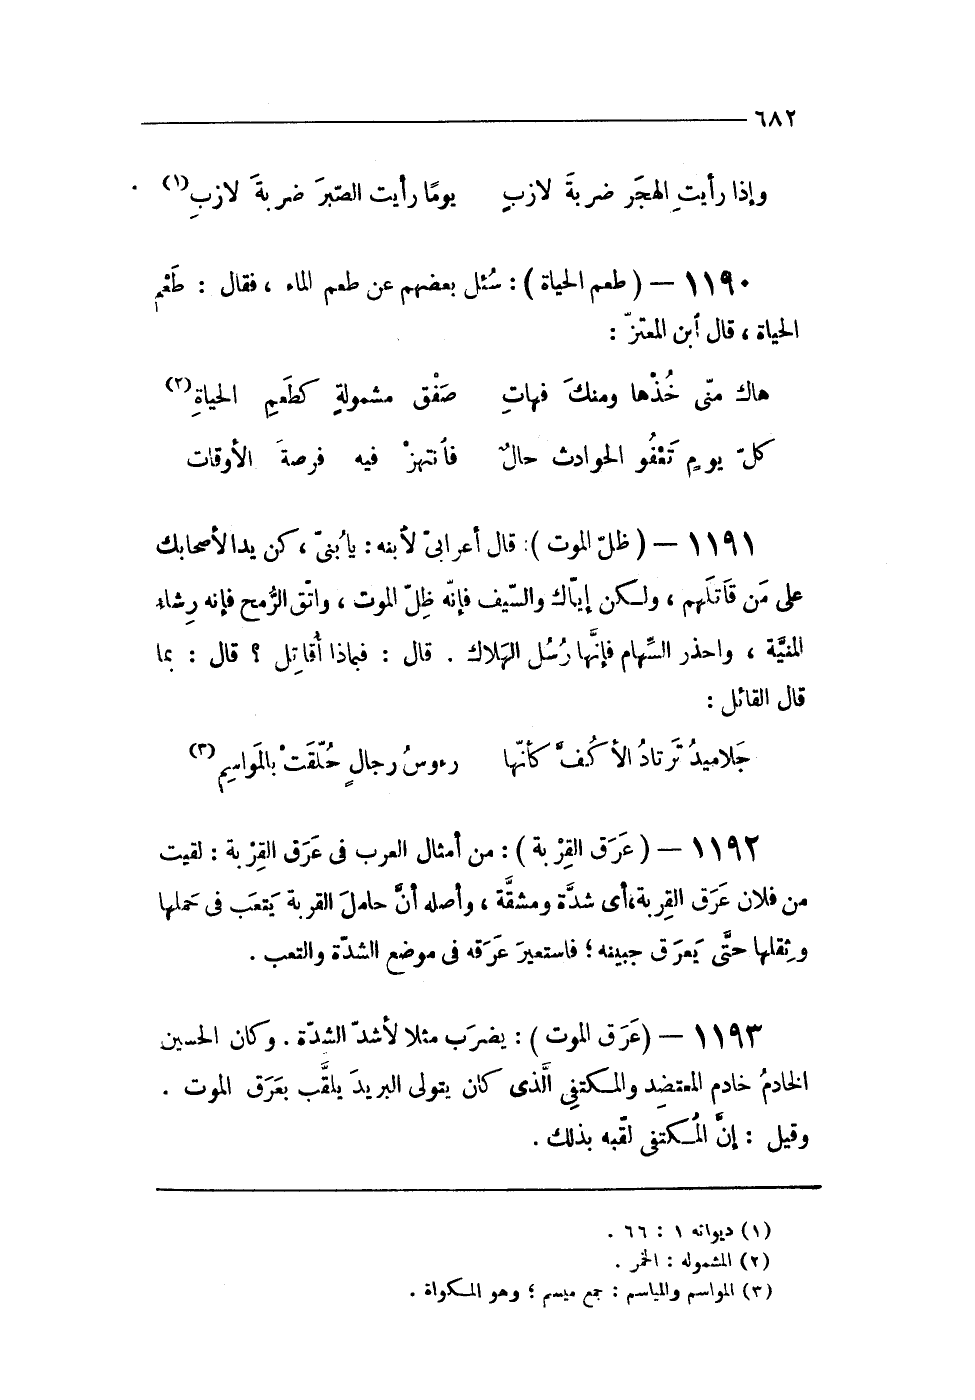 ٦٨٢
وإذا رأيتِ الهجَر ضربةَ لازبٍ يومًا رأيت الصّبرَ ضربةَ لازبِ(١) .
١١٩٠ — ( طعم الحياة ) : سُئل بعضهم عن طعم الماء ، فقال : طَعْم
الحياة ، قال ٱبن المعتزّ :
هاك منّى خُذْها ومنكَ فهاتِ صَفْق مشمولةٍ كطَعمِ الحياةِ(٢)
كلّ يومٍ تَعْفُو الحوادث حالٌ فٱنتهزْ فيه فرصةَ الأوقات
١١٩١ — ( ظلّ الموت ) : قال أعرابىّ لٱبنه : يا بُنىّ ، كن يدا لأصحابك
على مَن قَاتَلهم ، ولكن إيّاك والسّيف فإنّه ظِلّ الموت ، واتّق الرُّمح فإنه رِشاء
المنيَّة ، واحذر السِّهام فإنَّها رُسُل الهَلاك . قال : فبماذا أُقاتِل ؟ قال : بما
قال القائل :
جَلاميدُ تَرتادُ الأكُفَّ كأنّها رءوسُ رجالٍ حُلّقَتْ بالمَواسِمِ(٣)
١١٩٢ — ( عَرَق القِرْبة ) : من أمثال العرب فى عَرَق القِرْبة : لقيت
من فلان عَرَق القِربة، أى شدَّة ومشقَّة ، وأصله أنَّ حاملَ القربة يَتعَب فى حَملها
وثِقلها حتَّى يَعرَق جبينه ؛ فاستعيرَ عَرَقه فى موضع الشدّة والتعب .
١١٩٣ — (عَرَق الموت ) : يضرَب مثلا لأشدّ الشدّة . وكان الحسين
الخادمُ خادم المعتضِد والمكتفِى الَّذى كان يتولى البريدَ يلقَّب بعَرَق الموت .
وقيل : إنَّ المُكتفى لقّبه بذلك .
(١) ديوانه ١ : ٦٦ .
(٢) المشموله : الخمر .
(٣) المواسم والمياسم : جمع ميسم ؛ وهو المكواة .